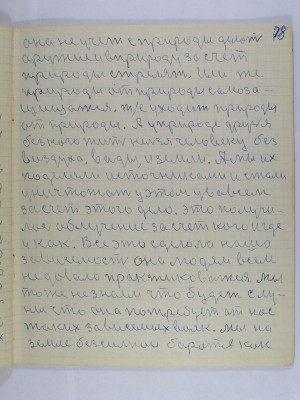 78
она не учет с природы делат
оружием в природу за счет
природы стрелят. Или же
природы от природы самоза-
щищатся. т/е уходит природы
от природы. А у природе друг я
без ного жит нилзя человеку без
воздуха, воды, и земли. А мы их
поделали источниками и стали
уничтожат у этом ув а всем
за счет этого дело. это получи-
лас облучение за счет кого и где
у как. Все это сделала наша
зависимост она людям всем
не давала практиковатся. мы
тоже не знали что будет слу-
ны что она потребует от нас
таких зависимых волк. мы на
земле без силной боротся как